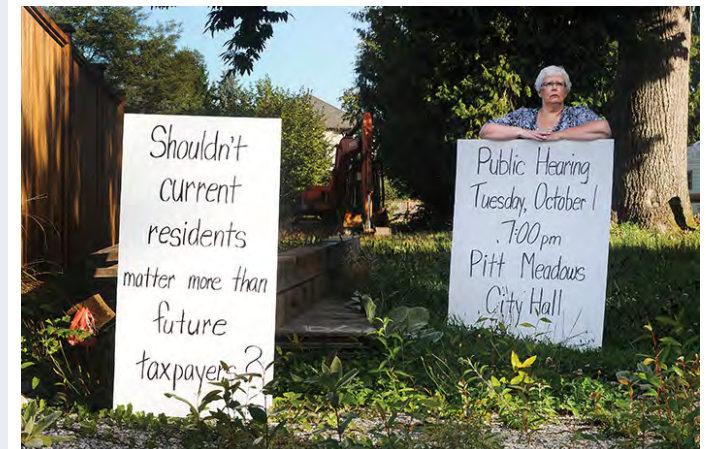 Shouldn't
current
residents
matter more than
future
taxpayers?
Public Hearing
Tuesday, October 1
7:00 pm
Pitt Meadows
City Hall